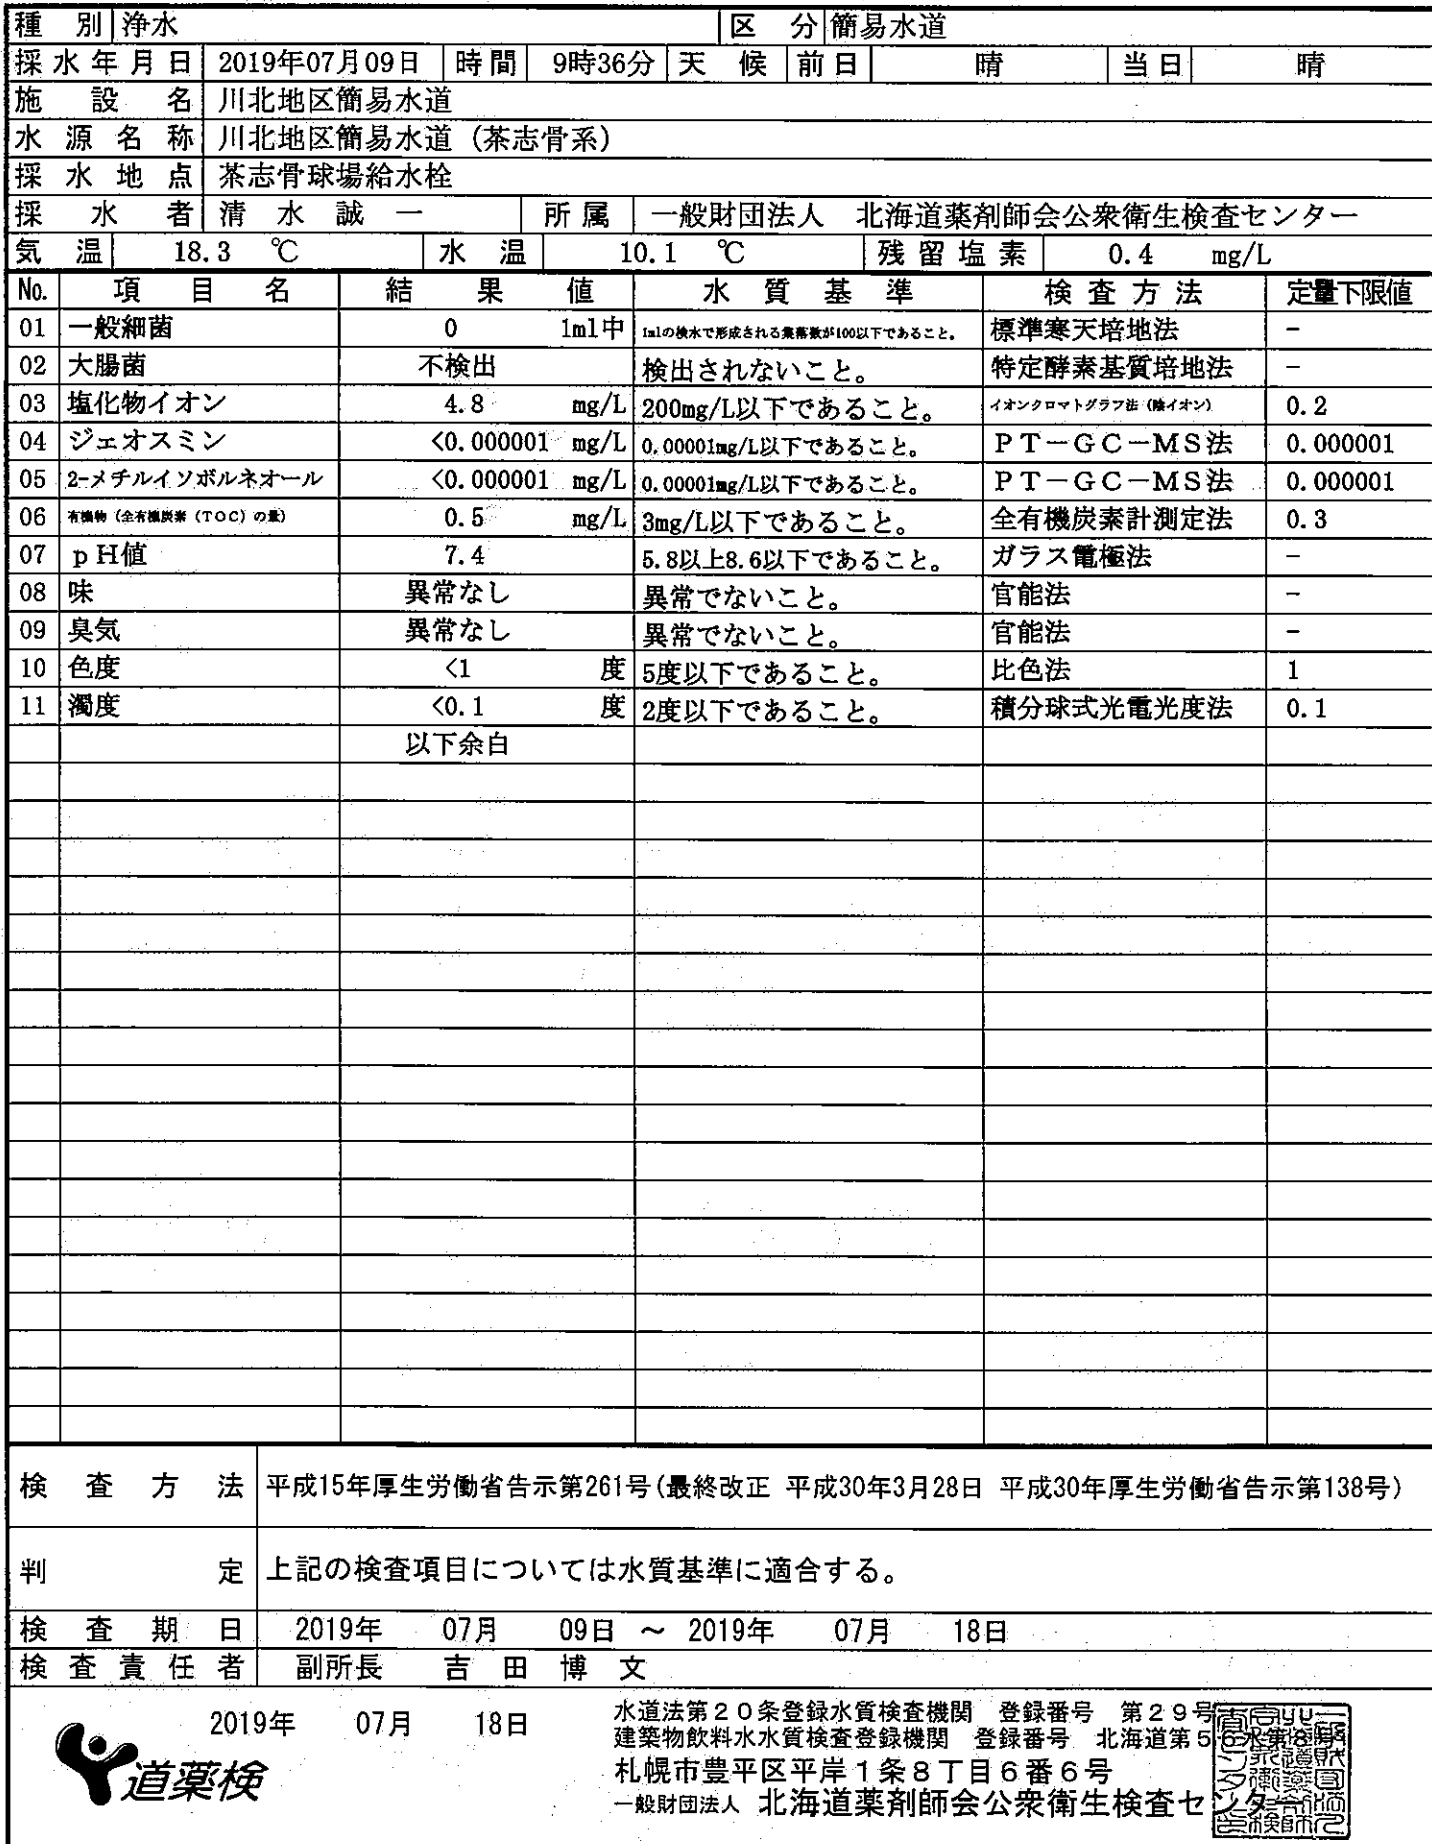 種別 浄水 区分 簡易水道
採水年月日 2019年07月09日 時間 9時36分 天候 前日 晴 当日 晴
施設名 川北地区簡易水道
水源名称 川北地区簡易水道（茶志骨系）
採水地点 茶志骨球場給水栓
採水者 清水誠一 所属 一般財団法人 北海道薬剤師会公衆衛生検査センター
気温 18.3 ℃ 水温 10.1 ℃ 残留塩素 0.4 mg/L
No. 項目名 結果値 水質基準 検査方法 定量下限値
01 一般細菌 0 1ml中 1mlの検水で形成される集落数が100以下であること。 標準寒天培地法 -
02 大腸菌 不検出 検出されないこと。 特定酵素基質培地法 -
03 塩化物イオン 4.8 mg/L 200mg/L以下であること。 イオンクロマトグラフ法（陰イオン） 0.2
04 ジェオスミン <0.000001 mg/L 0.00001mg/L以下であること。 PT－GC－MS法 0.000001
05 2-メチルイソボルネオール <0.000001 mg/L 0.00001mg/L以下であること。 PT－GC－MS法 0.000001
06 有機物（全有機炭素（TOC）の量） 0.5 mg/L 3mg/L以下であること。 全有機炭素計測定法 0.3
07 pH値 7.4 5.8以上8.6以下であること。 ガラス電極法 -
08 味 異常なし 異常でないこと。 官能法 -
09 臭気 異常なし 異常でないこと。 官能法 -
10 色度 <1 度 5度以下であること。 比色法 1
11 濁度 <0.1 度 2度以下であること。 積分球式光電光度法 0.1
以下余白
検査方法 平成15年厚生労働省告示第261号(最終改正 平成30年3月28日 平成30年厚生労働省告示第138号)
判定 上記の検査項目については水質基準に適合する。
検査期日 2019年 07月 09日 ～ 2019年 07月 18日
検査責任者 副所長 吉田博文
2019年 07月 18日
道薬検
水道法第２０条登録水質検査機関 登録番号 第２９号
建築物飲料水水質検査登録機関 登録番号 北海道第５６水第８号
札幌市豊平区平岸１条８丁目６番６号
一般財団法人 北海道薬剤師会公衆衛生検査センター